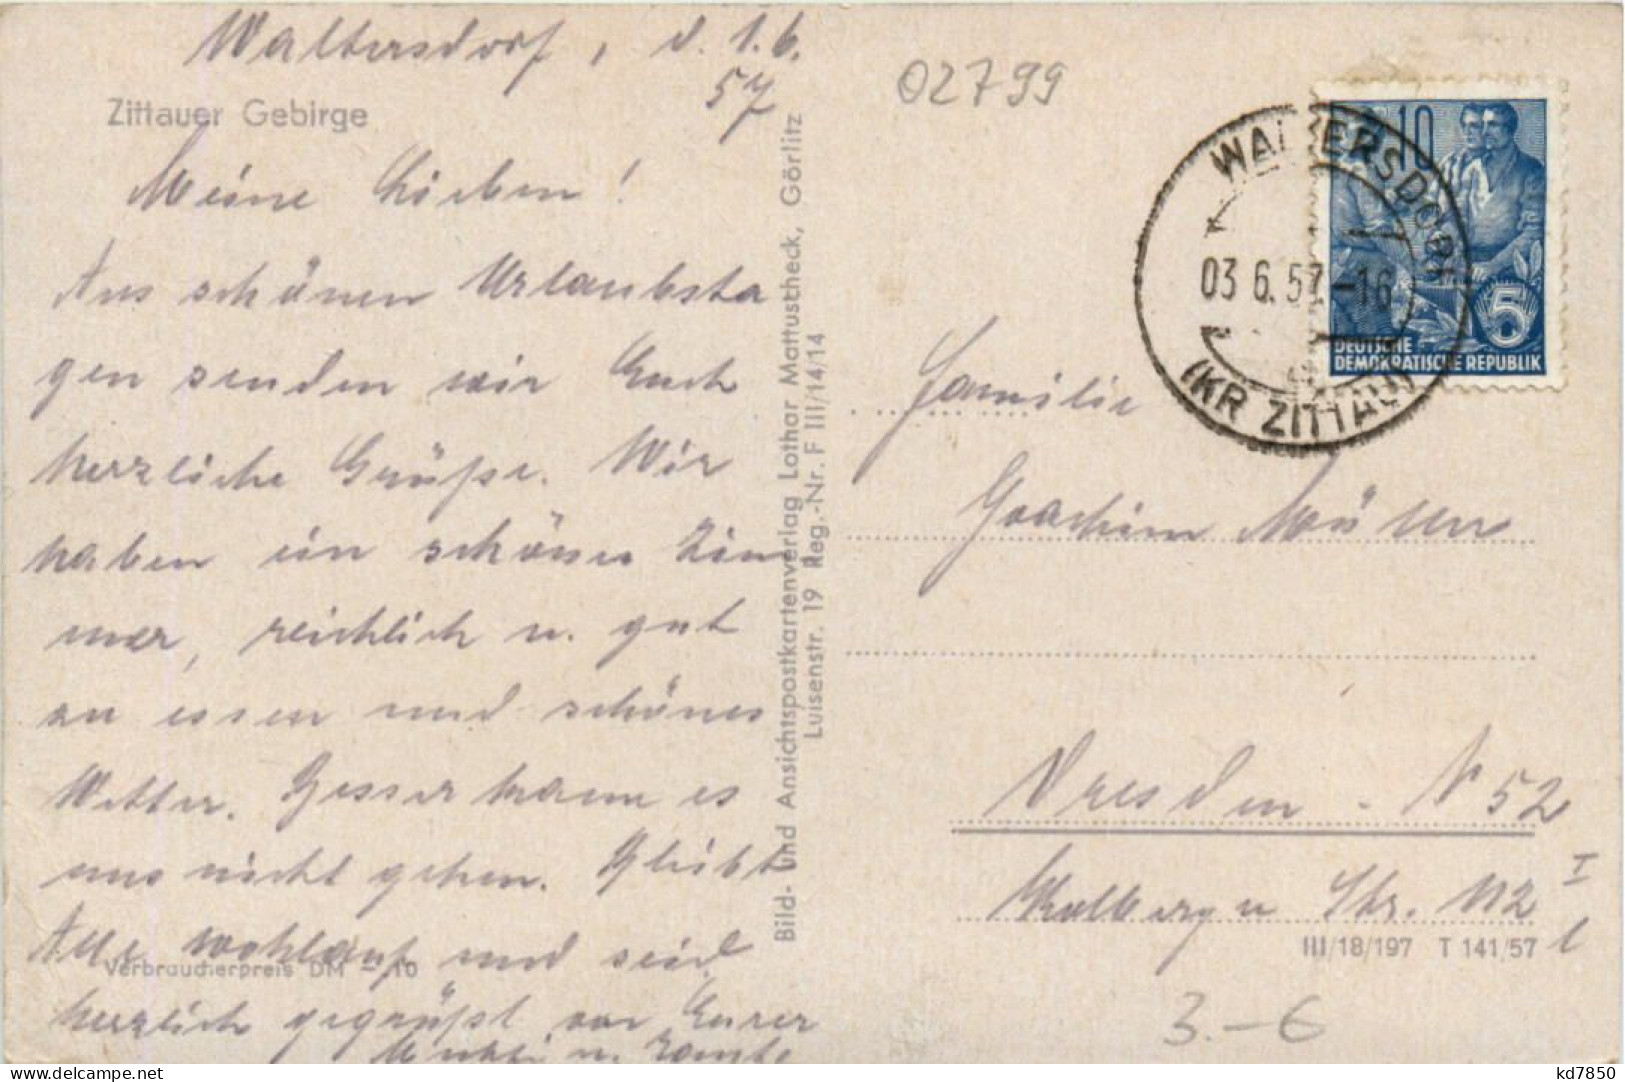 Waltersdorf, d. 1.6.
57
Zittauer Gebirge
Meine Lieben!
Aus schönen Urlaubsta
gen senden wir Euch
herzliche Grüße. Wir
haben ein schönes Zim
mer, reichlich u. gut
zu essen und schönes
Wetter. Besser kann es
uns nicht gehen. Bleibt
Alle wohlauf und seid
Verbraucherpreis DM -,10
herzlich gegrüßt von Eurer
Mutti u. Tante
Bild- und Ansichtspostkartenverlag Lothar Mattuscheck, Görlitz
Luisenstr. 19 Reg.-Nr. F III/14/14
02799
WALTERSDORF
03.6.57.-16
(KR ZITTAU)
10
5
DEUTSCHE
DEMOKRATISCHE REPUBLIK
Familie
Joachim Müller
Dresden - N 52
Str. 112 I
l
III/18/197 T 141/57
3.-6
kd7850